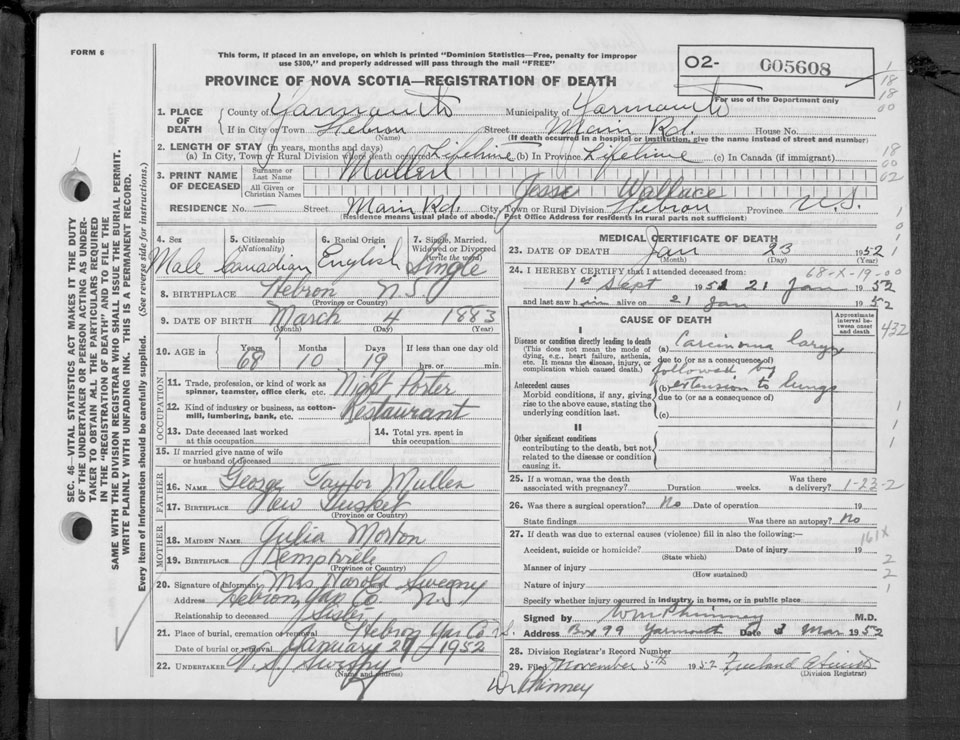 FORM 6
This form, if placed in an envelope, on which is printed "Dominion Statistics—Free, penalty for improper
use $300," and properly addressed will pass through the mail "FREE"
PROVINCE OF NOVA SCOTIA—REGISTRATION OF DEATH
02- 005608
For use of the Department only
1. PLACE OF DEATH County of Yarmouth Municipality of Yarmouth
If in City or Town Hebron (Name) Street Main Rd. House No.
(If death occurred in a hospital or institution, give the name instead of street and number)
2. LENGTH OF STAY (in years, months and days)
(a) In City, Town or Rural Division where death occurred Lifetime (b) In Province Lifetime (c) In Canada (if immigrant)
3. PRINT NAME OF DECEASED Surname or Last Name Mullen
All Given or Christian Names Jesse Wallace
RESIDENCE No. — Street Main Rd. City, Town or Rural Division Hebron Province N.S.
(Residence means usual place of abode. Post Office Address for residents in rural parts not sufficient)
4. Sex Male
5. Citizenship (Nationality) Canadian
6. Racial Origin English
7. Single, Married, Widowed or Divorced (write the word) Single
8. BIRTHPLACE Hebron N.S.
(Province or Country)
9. DATE OF BIRTH March 4 1883
(Month) (Day) (Year)
10. AGE in Years 68 Months 10 Days 19 If less than one day
hrs. or min.
OCCUPATION
11. Trade, profession, or kind of work as spinner, teamster, office clerk, etc. Night Porter
12. Kind of industry or business, as cotton-mill, lumbering, bank, etc. Restaurant
13. Date deceased last worked at this occupation
14. Total yrs. spent in this occupation
15. If married give name of wife or husband of deceased
FATHER
16. NAME George Taylor Mullen
17. BIRTHPLACE New Tusket
(Province or Country)
MOTHER
18. MAIDEN NAME Julia Morton
19. BIRTHPLACE
(Province or Country)
20. Signature of Informant Mrs Harold Sweeny
Address Hebron Yar. Co. N.S
Relationship to deceased Sister
21. Place of burial, cremation or removal Hebron Yar Co N.S.
Date of burial or removal January 1952
22. UNDERTAKER Sweeny
(Name and address)
MEDICAL CERTIFICATE OF DEATH
23. DATE OF DEATH Jan 23 1952
(Month) (Day) (Year)
68-X-19-00
24. I HEREBY CERTIFY that I attended deceased from:
1st Sept 1951 21 Jan 1952
and last saw him alive on 21 Jan 1952
CAUSE OF DEATH
Approximate interval between onset and death
I
Disease or condition directly leading to death
(This does not mean the mode of dying, e.g., heart failure, asthenia, etc. It means the disease, injury, or complication which caused death.)
(a) Carcinoma larynx
due to (or as a consequence of)
followed by
Antecedent causes
Morbid conditions, if any, giving rise to the above cause, stating the underlying condition last.
(b) extension to lungs
due to (or as a consequence of)
(c)
II
Other significant conditions
contributing to the death, but not related to the disease or condition causing it.
25. If a woman, was the death associated with pregnancy? Duration weeks. Was there a delivery? 1-23-2
26. Was there a surgical operation? No Date of operation 19
State findings Was there an autopsy? No
27. If death was due to external causes (violence) fill in also the following:—
161X
Accident, suicide or homicide? Date of injury 19
(State which)
Manner of injury
(How sustained)
Nature of injury
Specify whether injury occurred in industry, in home, or in public place
Signed by Wm Phinney M.D.
Address Box 99 Yarmouth Date 3 Mar 1952
28. Division Registrar's Record Number
29. Filed November 5th 1952
(Division Registrar)
Dr Phinney
SEC. 46—VITAL STATISTICS ACT MAKES IT THE DUTY
OF THE UNDERTAKER OR PERSON ACTING AS UNDER-
TAKER TO OBTAIN ALL THE PARTICULARS REQUIRED
IN THE "REGISTRATION OF DEATH" AND TO FILE THE
SAME WITH THE DIVISION REGISTRAR WHO SHALL ISSUE THE BURIAL PERMIT.
WRITE PLAINLY WITH UNFADING INK. THIS IS A PERMANENT RECORD.
Every item of information should be carefully supplied. (See reverse side for instructions.)
1
18
18
00
18
00
02
1
0
1
1
432
1
1
1
2
2
1